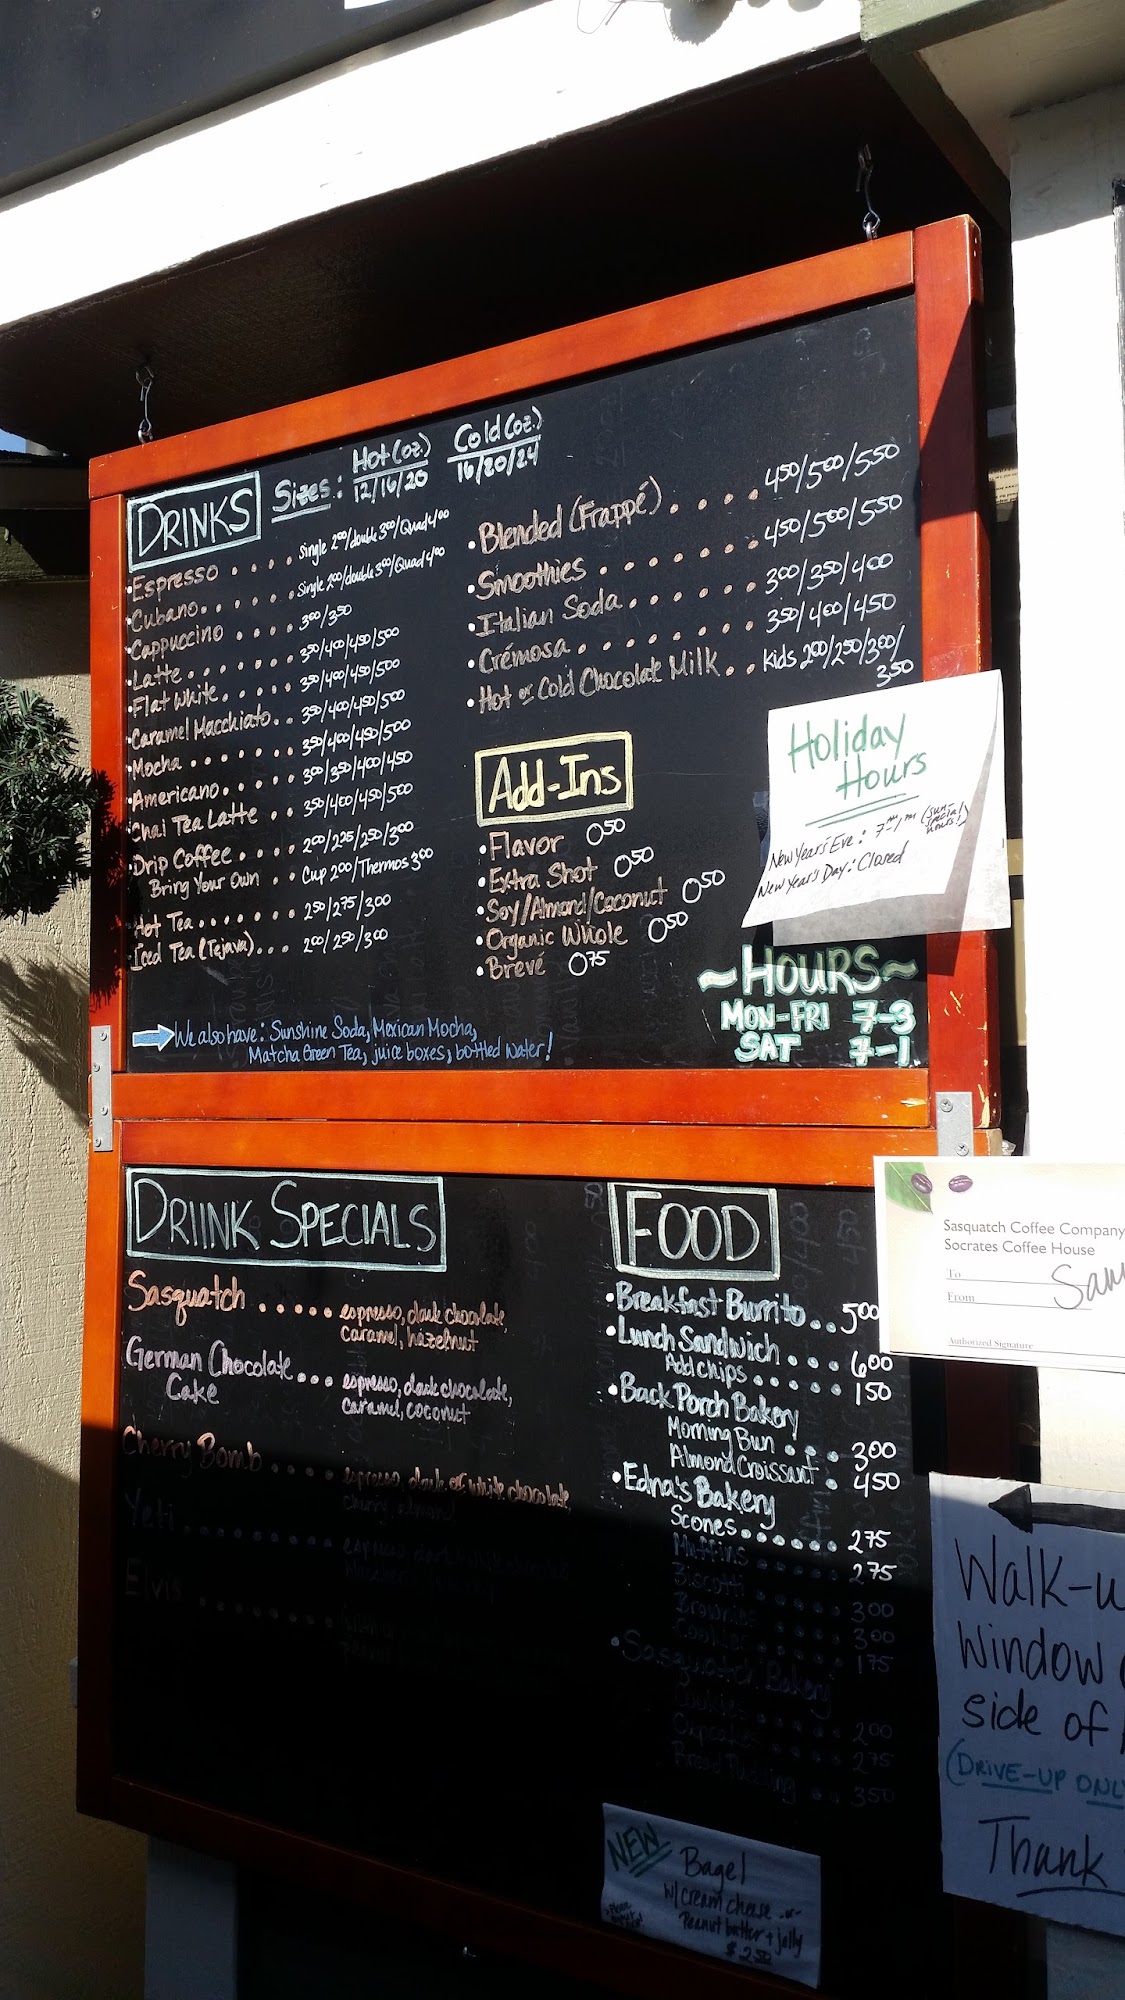 DRINKS
Sizes: Hot (oz.) 12/16/20 Cold (oz.) 16/20/24
•Espresso .... Single 2⁰⁰/double 3⁰⁰/Quad 4⁰⁰
•Cubano....... Single 2⁰⁰/double 3⁰⁰/Quad 4⁰⁰
•Cappuccino .... 3⁰⁰/3⁵⁰
•Latte....... 3⁵⁰/4⁰⁰/4⁵⁰/5⁰⁰
•Flat White..... 3⁵⁰/4⁰⁰/4⁵⁰/5⁰⁰
•Caramel Macchiato.. 3⁵⁰/4⁰⁰/4⁵⁰/5⁰⁰
•Mocha....... 3⁵⁰/4⁰⁰/4⁵⁰/5⁰⁰
•Americano..... 3⁰⁰/3⁵⁰/4⁰⁰/4⁵⁰
•Chai Tea Latte .. 3⁵⁰/4⁰⁰/4⁵⁰/5⁰⁰
•Drip Coffee .... 2⁰⁰/2²⁵/2⁵⁰/3⁰⁰
Bring Your Own .. Cup 2⁰⁰/Thermos 3⁰⁰
•Hot Tea....... 2⁵⁰/2⁷⁵/3⁰⁰
•Iced Tea (Tejava)... 2⁰⁰/2⁵⁰/3⁰⁰
•Blended (Frappé).... 4⁵⁰/5⁰⁰/5⁵⁰
•Smoothies ....... 4⁵⁰/5⁰⁰/5⁵⁰
•Italian Soda...... 3⁰⁰/3⁵⁰/4⁰⁰
•Crémosa........ 3⁵⁰/4⁰⁰/4⁵⁰
•Hot or Cold Chocolate Milk.. Kids 2⁰⁰/2⁵⁰/3⁰⁰/
3⁵⁰
Add-Ins
•Flavor 0⁵⁰
•Extra Shot 0⁵⁰
•Soy/Almond/Coconut 0⁵⁰
•Organic Whole 0⁵⁰
•Brevé 0⁷⁵
Holiday
Hours
New Year's Eve: 7AM-1PM (
New Year's Day: Closed
~HOURS~
MON-FRI 7-3
SAT 7-1
We also have: Sunshine Soda, Mexican Mocha,
Matcha Green Tea, juice boxes, bottled water!
DRIINK SPECIALS
Sasquatch ..... espresso, dark chocolate,
caramel, hazelnut
German Chocolate... espresso, dark chocolate,
Cake caramel, coconut
Cherry Bomb .... espresso, dark or white chocolate,
cherry, almond
Yeti
Elvis
FOOD
•Breakfast Burrito.. 5⁰⁰
•Lunch Sandwich ... 6⁰⁰
Add chips..... 1⁵⁰
•Back Porch Bakery
Morning Bun ... 3⁰⁰
Almond Croissant. 4⁵⁰
•Edna's Bakery
Scones...... 2⁷⁵
Muffins ..... 2⁷⁵
Biscotti ..... 3⁰⁰
Brownies ..... 3⁰⁰
Cookies ..... 1⁷⁵
•Sasquatch Bakery
Cookies ..... 2⁰⁰
Cupcakes .... 2⁷⁵
Bread Pudding .. 3⁵⁰
NEW Bagel
w/ cream cheese -or-
Peanut butter + jelly
$2⁵⁰
Sasquatch Coffee Company
Socrates Coffee House
To
From
Authorized Signature
Sam
Walk-u
Window
side of
(DRIVE-UP ONL
Thank